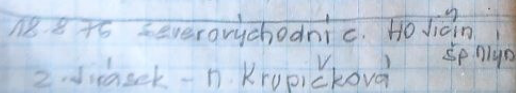 18.8.76 severovýchodní c. HO Jičín
šp mlýn
Z. Jirásek - n. Krupičková